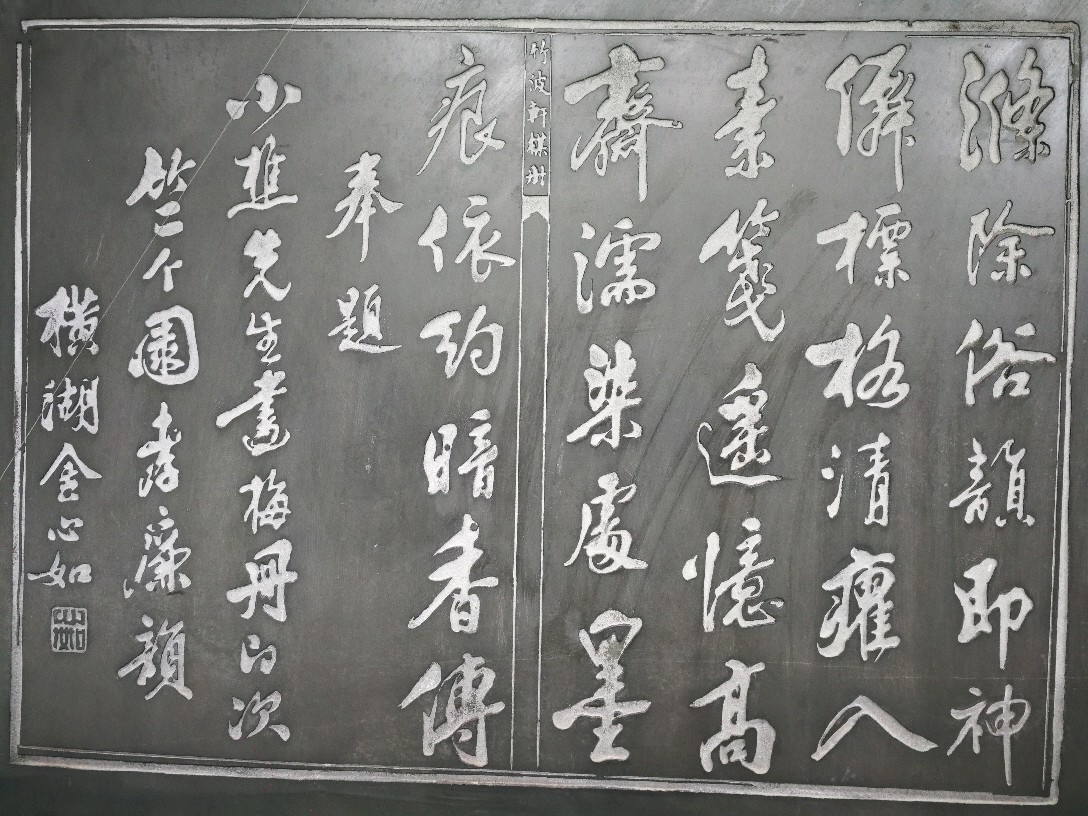 滌除俗韻即神
僊標格清癯入
素箋遥憶高
齋濡染處墨
竹波軒楳冊
痕依約暗香傳
奉題
小樵先生畫梅冊即次
竺个園孝廉韻
橫湖金心如